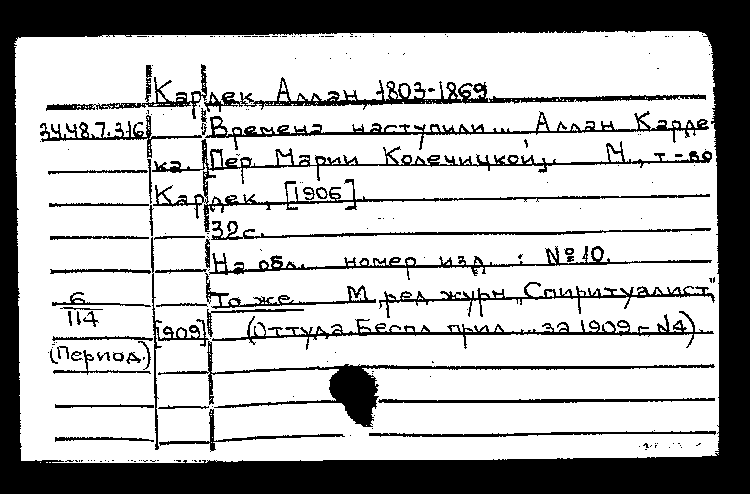 Кардек, Аллан, 1803-1869.
34.48.7.316 Времена наступили... Аллан Карде-
ка. Пер. Марии Колечицкой. М., т-во
Кардек, [1906].
32 с.
На обл. номер изд.: №10.
6/114 То же М., ред. журн. „Спиритуалист",
[909] (Оттуда. Беспл. прил.... за 1909 г. №4)
(Период.)